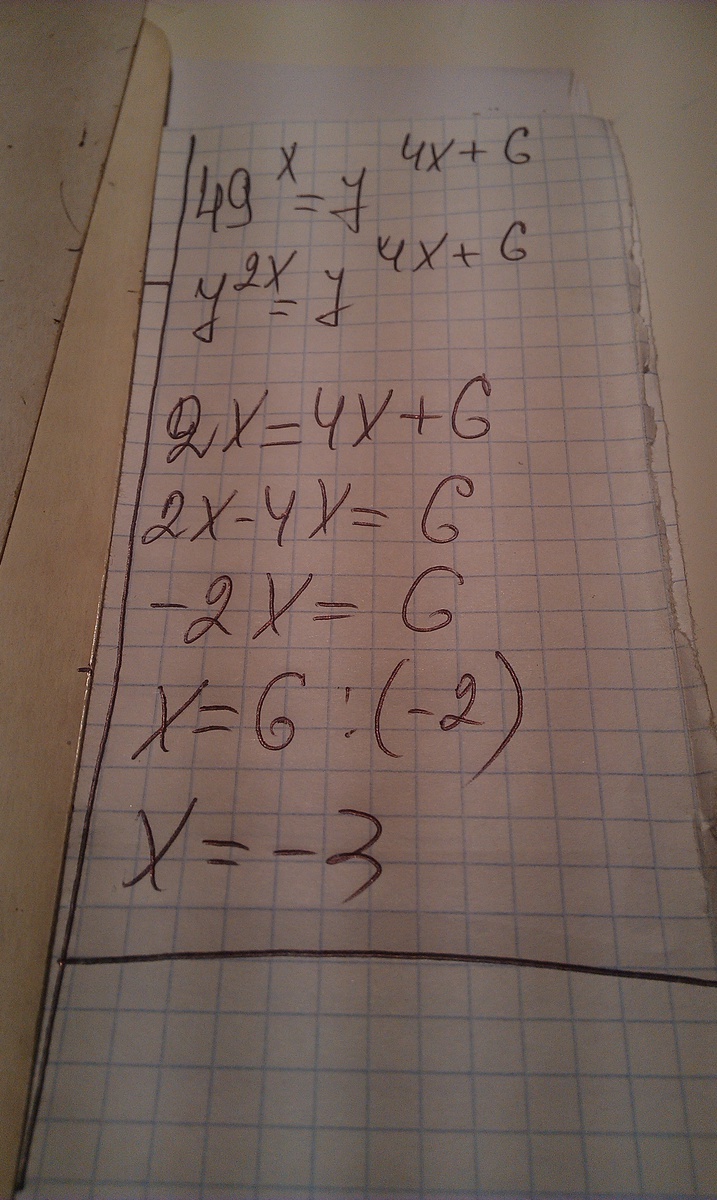 49^x = 7^{4x+6}
7^{2x} = 7^{4x+6}
2x = 4x + 6
2x - 4x = 6
-2x = 6
x = 6 : (-2)
x = -3